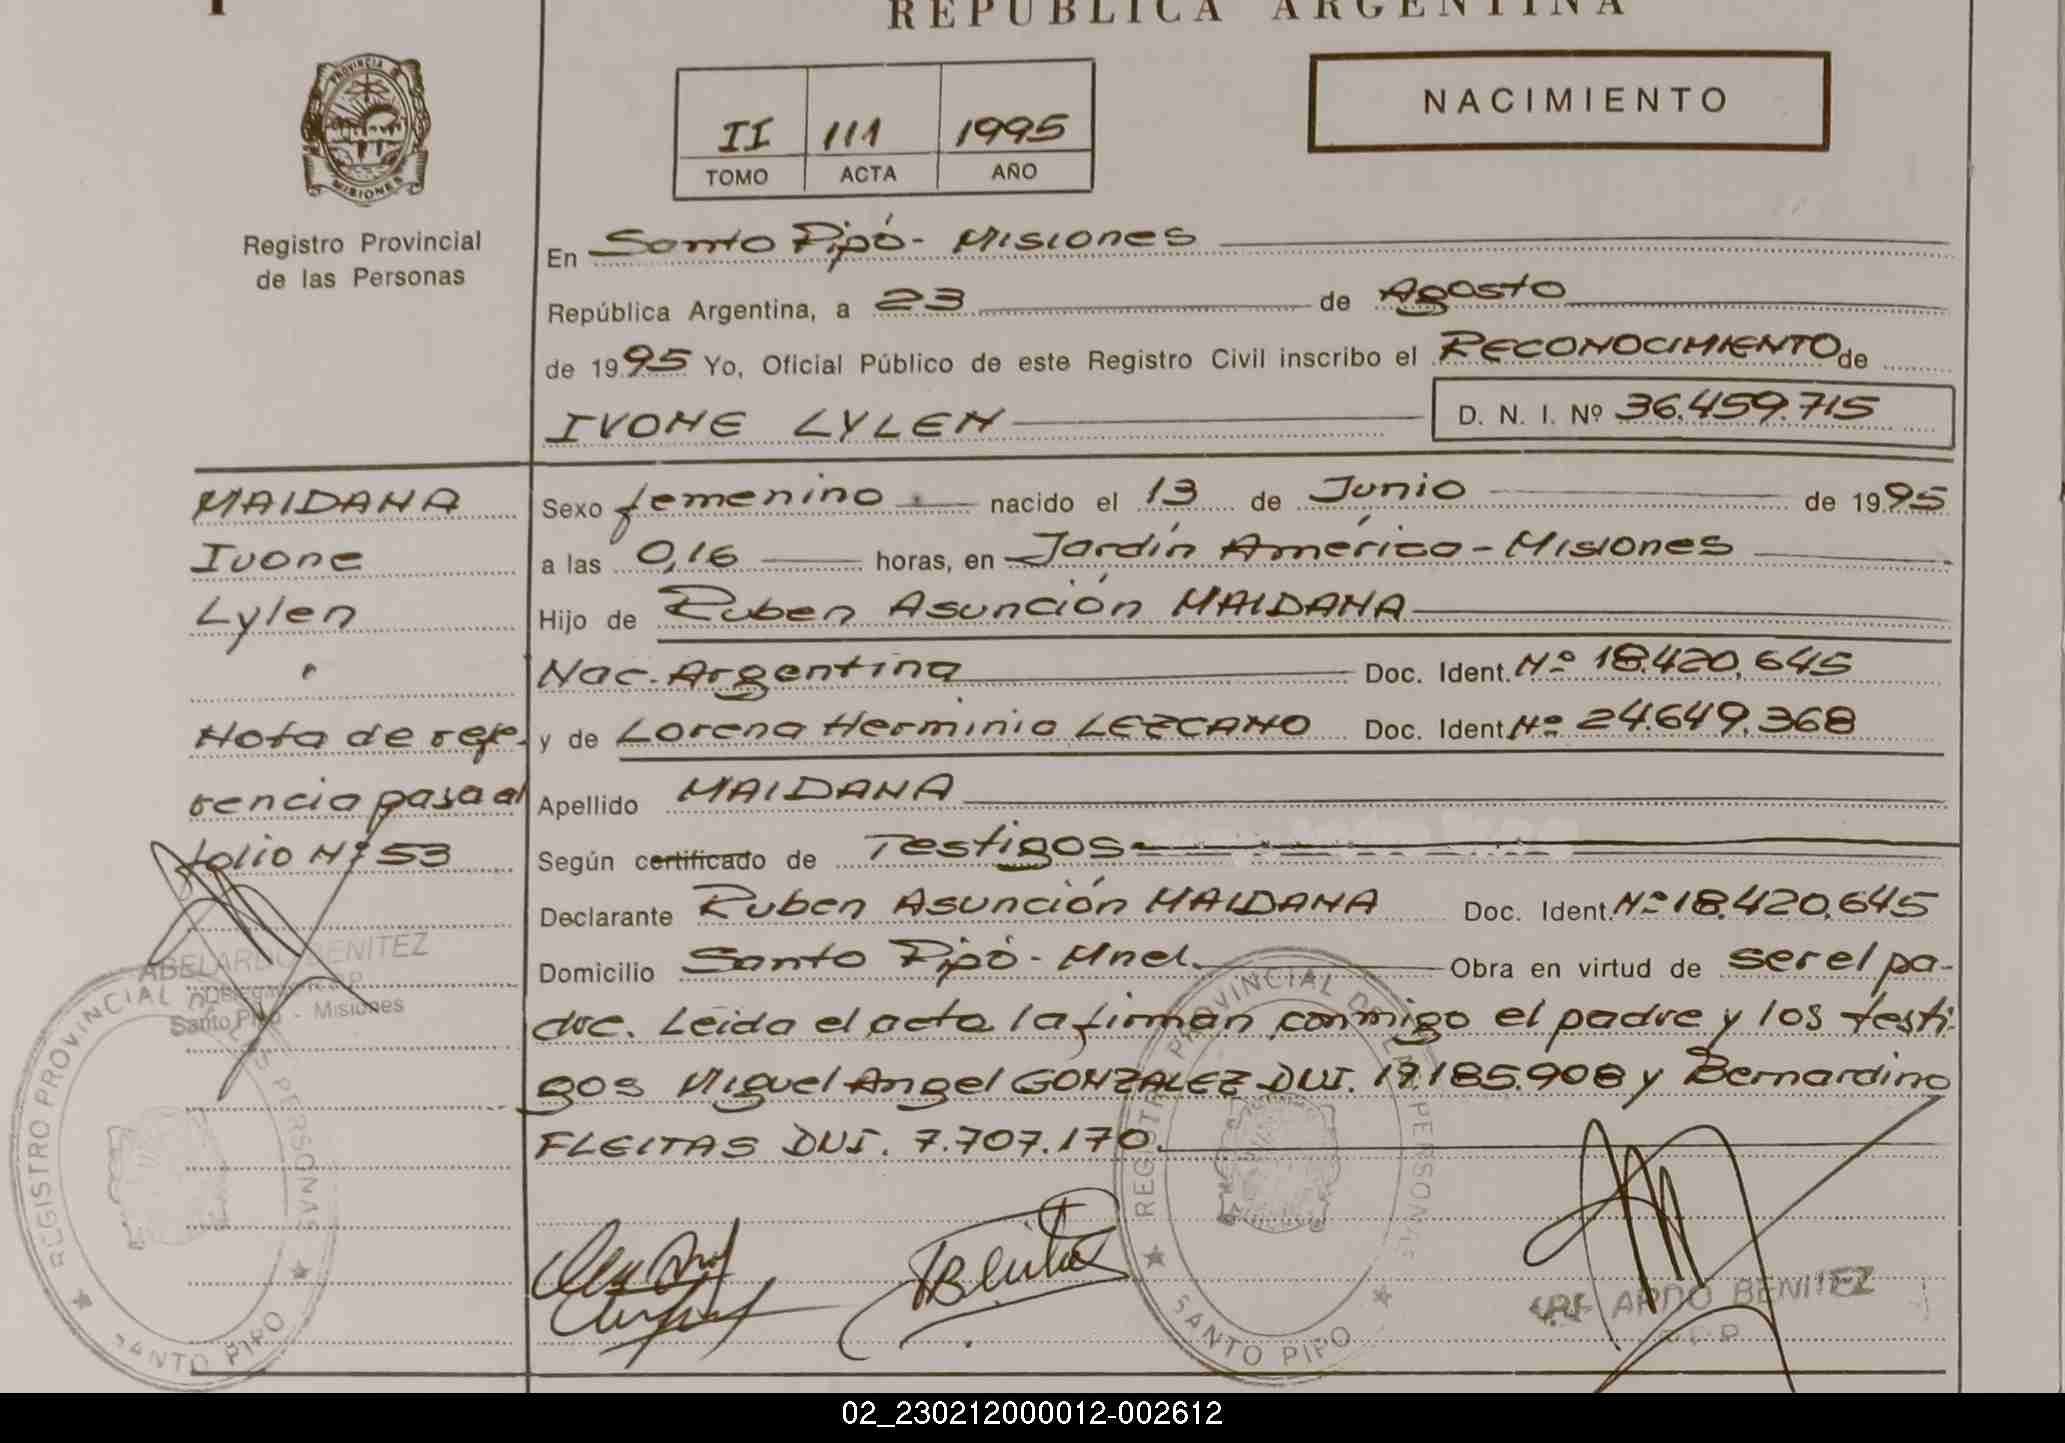 REPUBLICA ARGENTINA
PROVINCIA
MISIONES
Registro Provincial
de las Personas
II 111 1995
TOMO ACTA AÑO
NACIMIENTO
En Santo Pipó - Misiones
República Argentina, a 23 de Agosto
de 1995 Yo, Oficial Público de este Registro Civil inscribo el RECONOCIMIENTO de
IVONE LYLEN D. N. I. Nº 36.459.715
MAIDANA
Ivone
Lylen
Nota de refe-
rencia pasa al
folio Nº 53
ABELARDO BENITEZ
Santo Pipó - Misiones
REGISTRO PROVINCIAL DE LAS PERSONAS
SANTO PIPO
Sexo femenino nacido el 13 de Junio de 1995
a las 0,16 horas, en Jardín América - Misiones
Hijo de Ruben Asunción MAIDANA
Nac. Argentina Doc. Ident. Nº 18.420.645
y de Lorena Herminia LEZCANO Doc. Ident. Nº 24.649.368
Apellido MAIDANA
Según certificado de Testigos
Declarante Ruben Asunción MAIDANA Doc. Ident. Nº 18.420.645
Domicilio Santo Pipó - Mnes. Obra en virtud de ser el pa-
dre. Leida el acta la firman conmigo el padre y los testi-
gos Miguel Angel GONZALEZ DNI. 17.185.908 y Bernardino
FLEITAS DNI. 7.707.170.
REGISTRO PROVINCIAL DE LAS PERSONAS
SANTO PIPO
BENITEZ
02_230212000012-002612